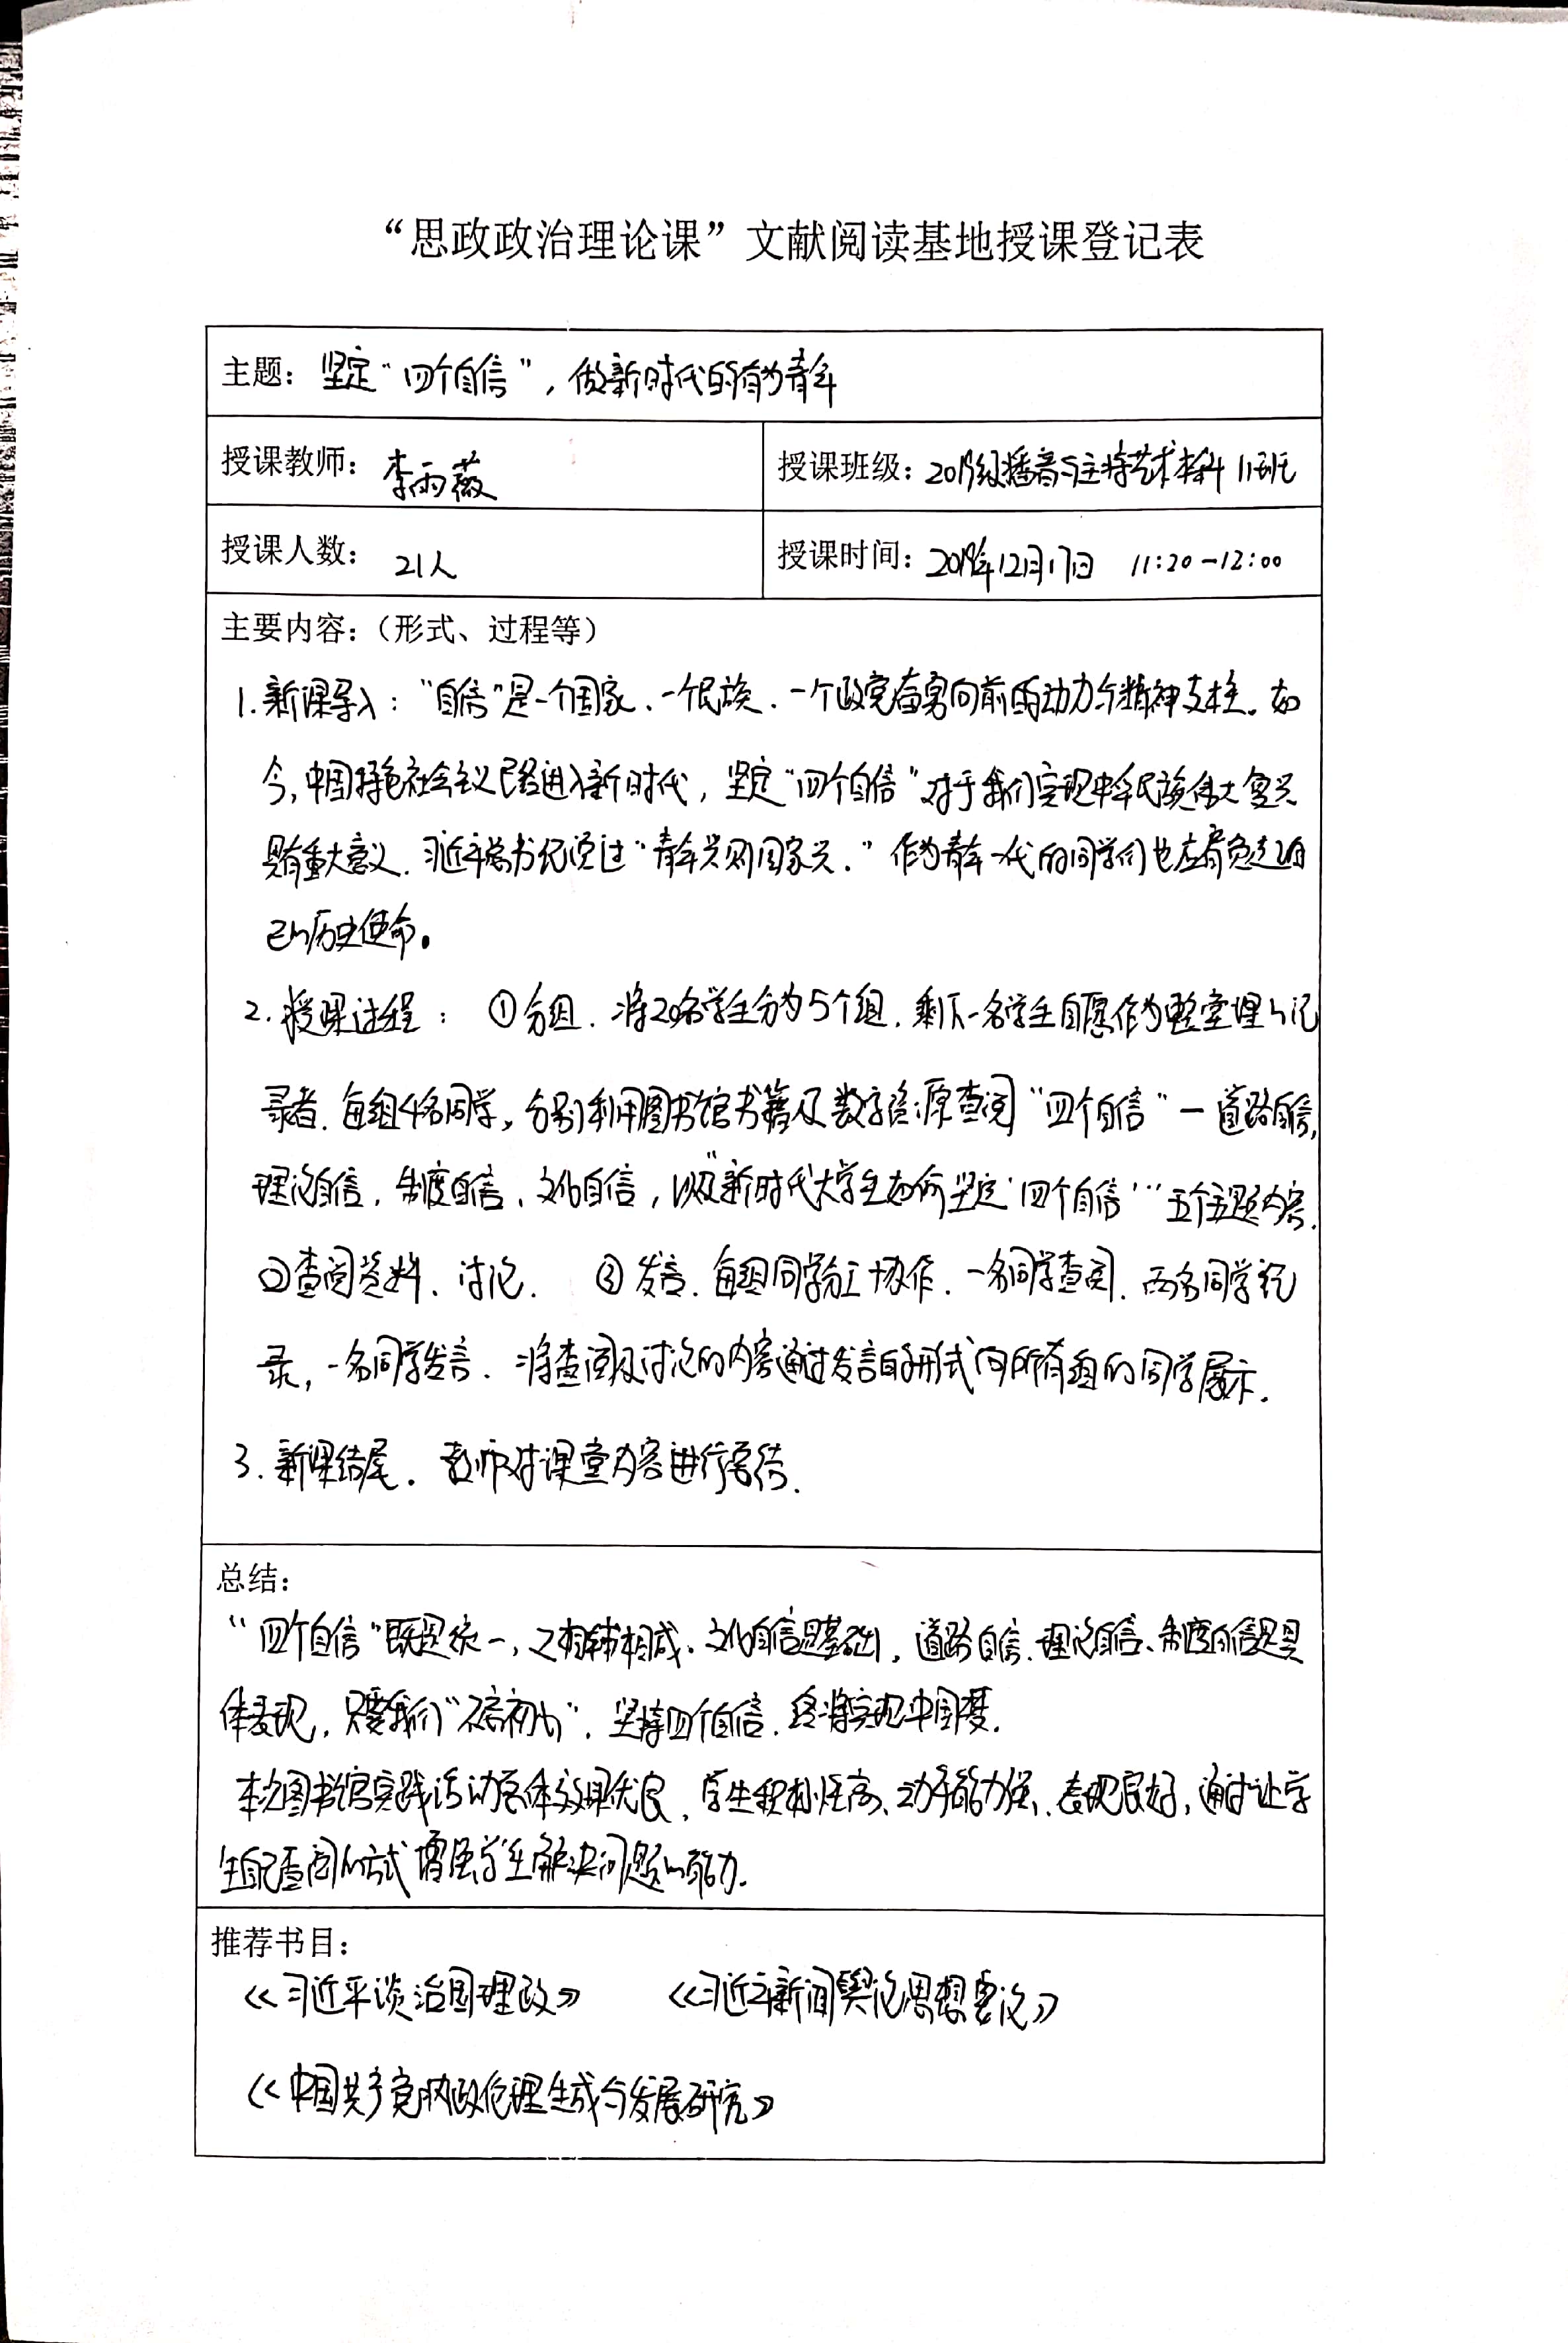 “思政政治理论课”文献阅读基地授课登记表
主题：坚定“四个自信”，做新时代的有为青年
授课教师：李雨薇
授课班级：2019级播音与主持艺术本科11班
授课人数：21人
授课时间：2019年12月17日 11:20-12:00
主要内容：（形式、过程等）
1.新课导入：“自信”是一个国家、一个民族、一个政党奋勇向前的动力与精神支柱。如
今，中国特色社会主义已经进入新时代，坚定“四个自信”对于我们实现中华民族伟大复兴
具有重大意义.习近平总书记说过“青年兴则国家兴.”作为青年一代的同学们也在肩负起自
己的历史使命。
2.授课过程：①分组.将20名学生分为5个组.剩下一名学生自愿作为整堂课的记
录者.每组4名同学,分别利用图书馆书籍及数字资源查阅“四个自信”—道路自信,
理论自信,制度自信、文化自信,以及“新时代大学生如何坚定‘四个自信’”五个主题内容.
②查阅资料、讨论. ③发言.每组同学分工协作.一名同学查阅.两名同学记
录,一名同学发言.将查阅及讨论的内容通过发言的形式向所有组的同学展示.
3.新课结尾.教师对课堂内容进行总结.
总结：
“四个自信”既是统一,又相辅相成.文化自信是基础,道路自信.理论自信、制度自信是具
体表现,只要我们“不忘初心”.坚持四个自信.终将实现中国梦.
本次图书馆实践活动总体效果优良,学生积极性高、动手能力强、表现良好,通过让学
生自己查阅的方式增强学生解决问题的能力.
推荐书目：
《习近平谈治国理政》 《习近平新闻舆论思想要论》
《中国共产党执政伦理生成与发展研究》